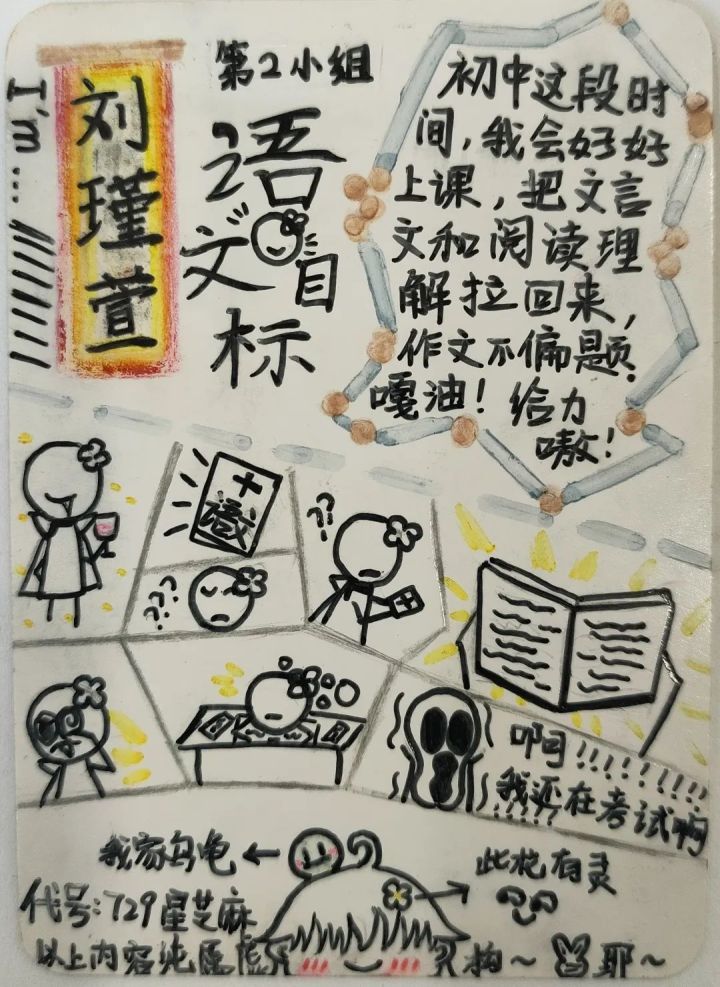 I'm...
刘瑾萱
第2小组
语文目标
初中这段时
间,我会好好
上课,把文言
文和阅读理
解拉回来,
作文不偏题.
嘎油!给力
嗷!
十
语文
???
??
啊!!!!!!!!
我还在考试啊
!!!!!
我家乌龟
此花有灵
代号:729星芝麻
以上内容纯属虚构~耶~